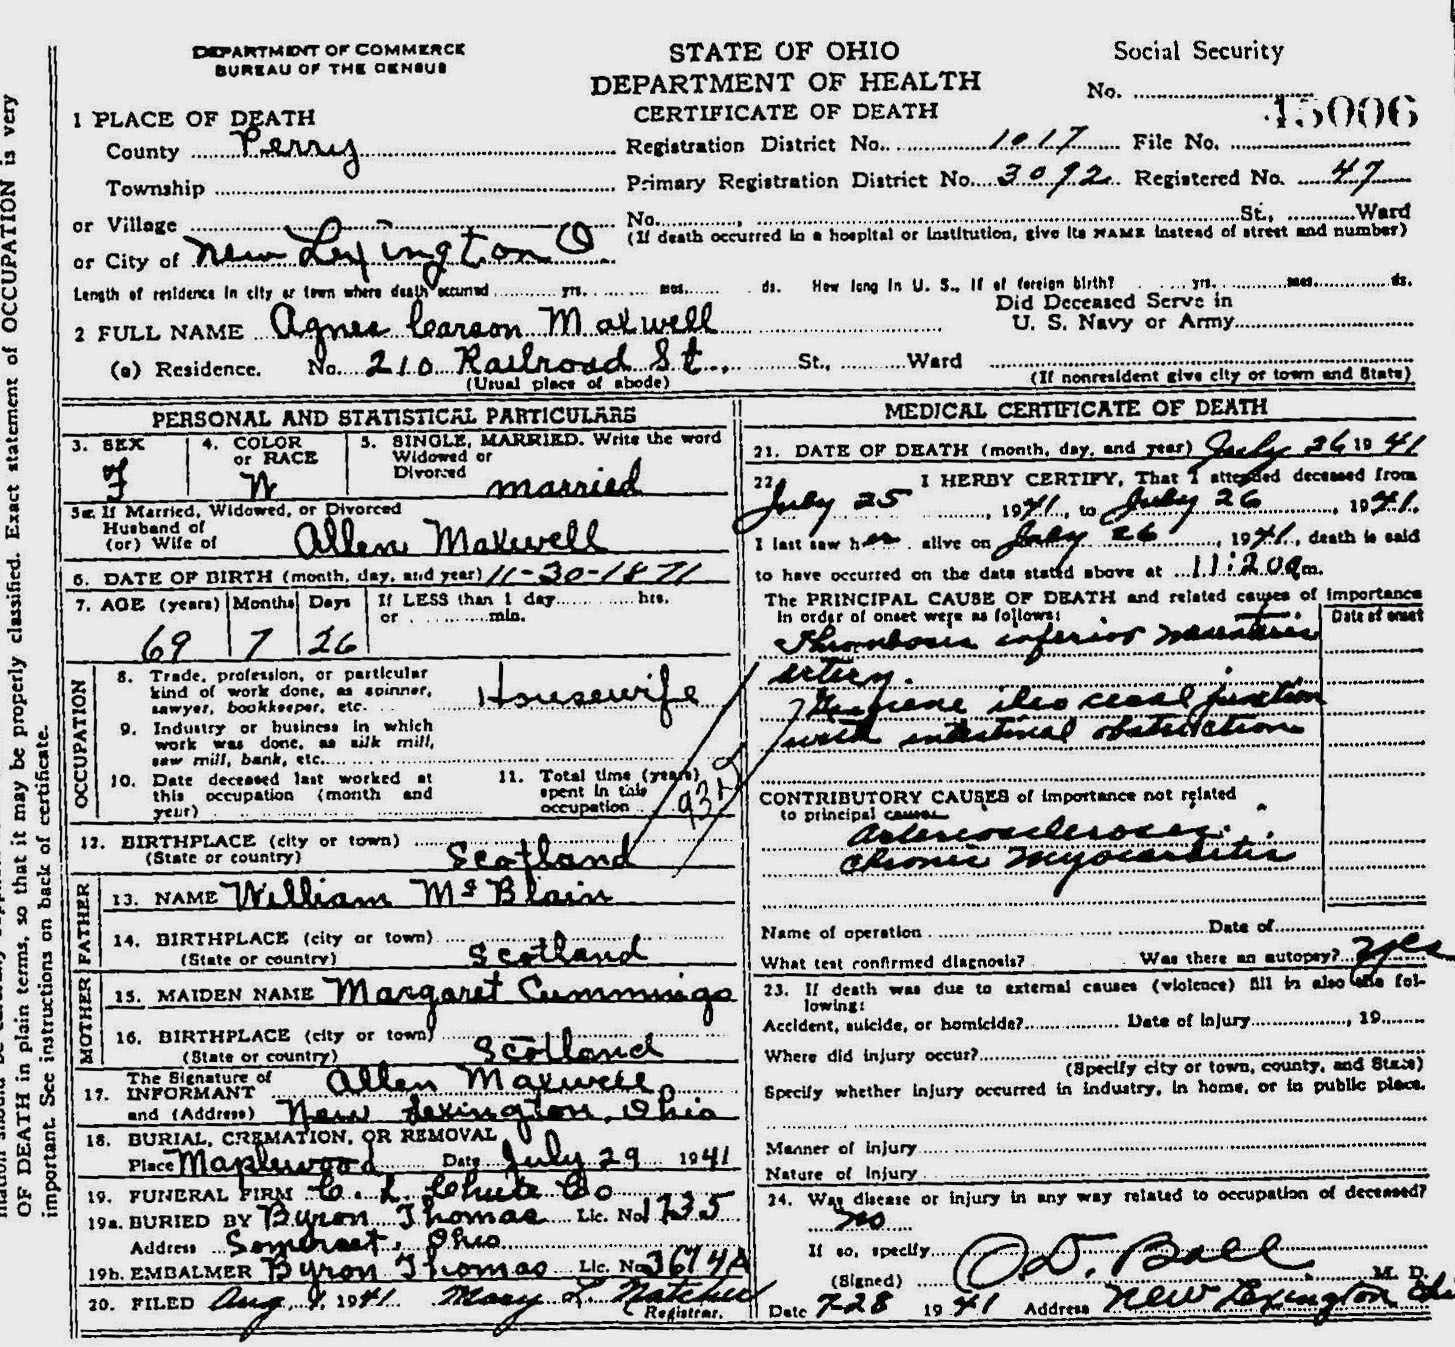 DEPARTMENT OF COMMERCE
BUREAU OF THE CENSUS
STATE OF OHIO
DEPARTMENT OF HEALTH
CERTIFICATE OF DEATH
Social Security
No.
45006
1 PLACE OF DEATH
County Perry
Registration District No. 1017 File No.
Township
Primary Registration District No. 3092 Registered No. 47
or Village
No. , St., Ward
(If death occurred in a hospital or institution, give its NAME instead of street and number)
or City of New Lexington O
Length of residence in city or town where death occurred yrs. mos. ds. How long in U. S., if of foreign birth? yrs. mos. ds.
Did Deceased Serve in
U. S. Navy or Army
2 FULL NAME Agnes Carson Maxwell
(a) Residence. No. 210 Railroad St., St., Ward
(Usual place of abode)
(If nonresident give city or town and State)
PERSONAL AND STATISTICAL PARTICULARS
3. SEX
F
4. COLOR
or RACE
W
5. SINGLE, MARRIED. Write the word
Widowed or
Divorced
married
5a. If Married, Widowed, or Divorced
Husband of
(or) Wife of Allen Maxwell
6. DATE OF BIRTH (month, day, and year) 11-30-1871
7. AGE (years) Months Days If LESS than 1 day hrs.
or min.
69 7 26
OCCUPATION
8. Trade, profession, or particular
kind of work done, as spinner,
sawyer, bookkeeper, etc. Housewife
9. Industry or business in which
work was done, as silk mill,
saw mill, bank, etc.
10. Date deceased last worked at
this occupation (month and
year)
11. Total time (years)
spent in this
occupation
12. BIRTHPLACE (city or town)
(State or country) Scotland
FATHER
13. NAME William McBlain
14. BIRTHPLACE (city or town)
(State or country) Scotland
MOTHER
15. MAIDEN NAME Margaret Cummings
16. BIRTHPLACE (city or town)
(State or country) Scotland
17. The Signature of
INFORMANT Allen Maxwell
and (Address) New Lexington, Ohio
18. BURIAL, CREMATION, OR REMOVAL
Place Maplewood Date July 29 1941
19. FUNERAL FIRM C. L. Chute Co
19a. BURIED BY Byron Thomas Lic. No. 1735
Address Somerset, Ohio
19b. EMBALMER Byron Thomas Lic. No. 3674A
20. FILED Aug 1, 1941 Mary L.
Registrar.
MEDICAL CERTIFICATE OF DEATH
21. DATE OF DEATH (month, day, and year) July 26 1941
22. I HERBY CERTIFY, That I attended deceased from
July 25, 1941, to July 26, 1941.
I last saw her alive on July 26, 1941, death is said
to have occurred on the date stated above at 11:20am.
The PRINCIPAL CAUSE OF DEATH and related causes of importance
in order of onset were as follows:
Date of onset
Thrombosis inferior mesenteric
artery.
Gangrene ileo cecal junction
with intestinal obstruction
CONTRIBUTORY CAUSES of importance not related
to principal cause:
Arteriosclerosis.
Chronic Myocarditis
Name of operation Date of
What test confirmed diagnosis? Was there an autopsy? yes
23. If death was due to external causes (violence) fill in also the fol-
lowing:
Accident, suicide, or homicide? Date of injury , 19
Where did injury occur?
(Specify city or town, county, and State)
Specify whether injury occurred in industry, in home, or in public place.
Manner of injury
Nature of injury
24. Was disease or injury in any way related to occupation of deceased?
No
If so, specify
(Signed) O. D. Ball M. D.
Date 7-28 1941 Address New Lexington
OF DEATH in plain terms, so that it may be properly classified. Exact statement of OCCUPATION is very
important. See instructions on back of certificate.